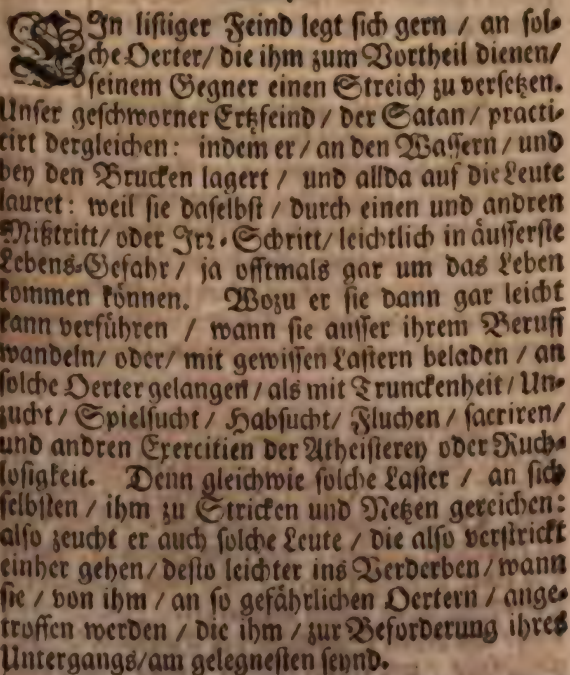 EIn listiger Feind legt sich gern / an sol-
che Oerter / die ihm zum Vortheil dienen /
seinem Gegner einen Streich zu versetzen.
Unser geschworner Ertzfeind / der Satan / practi-
cirt dergleichen: indem er / an den Wassern / und
bey den Brucken lagert / und allda auf die Leute
lauret: weil sie daselbst / durch einen und andren
Mißtritt / oder Irr-Schritt / leichtlich in äusserste
Lebens-Gefahr / ja offtmals gar um das Leben
kommen können. Wozu er sie dann gar leicht
kann verführen / wann sie ausser ihrem Beruff
wandeln / oder / mit gewissen Lastern beladen / an
solche Oerter gelangen / als mit Trunckenheit / Un-
zucht / Spielsucht / Habsucht / Fluchen / sacriren /
und andren Exercitien der Atheisterey oder Ruch-
losigkeit. Denn gleichwie solche Laster / an sich
selbsten / ihm zu Stricken und Netzen gereichen:
also zeucht er auch solche Leute / die also verstrickt
einher gehen / desto leichter ins Verderben / wann
sie / von ihm / an so gefährlichen Oertern / ange-
troffen werden / die ihm / zur Beforderung ihres
Untergangs / am gelegnesten seynd.